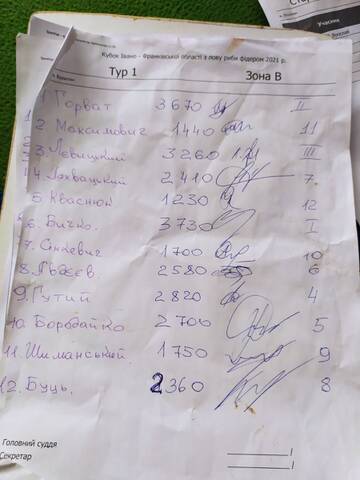 Кубок Івано - Франківської області з лову риби фідером 2021 р.
Тур 1 Зона В
1 Горват 3670 II
2 Максимович 1440 11
3. Левицький 3260 III
4. 2410 7
5. Кваснюк 1230 12
6. Бичко. 3730 I
7. Сінкевич 1700 10
8. 2580 6
9. Гутий 2820 4
10. Боробайко 2700 5
11. Шиманський 1750 9
12. Буць. 2360 8
Головний суддя
Секретар
Учасник